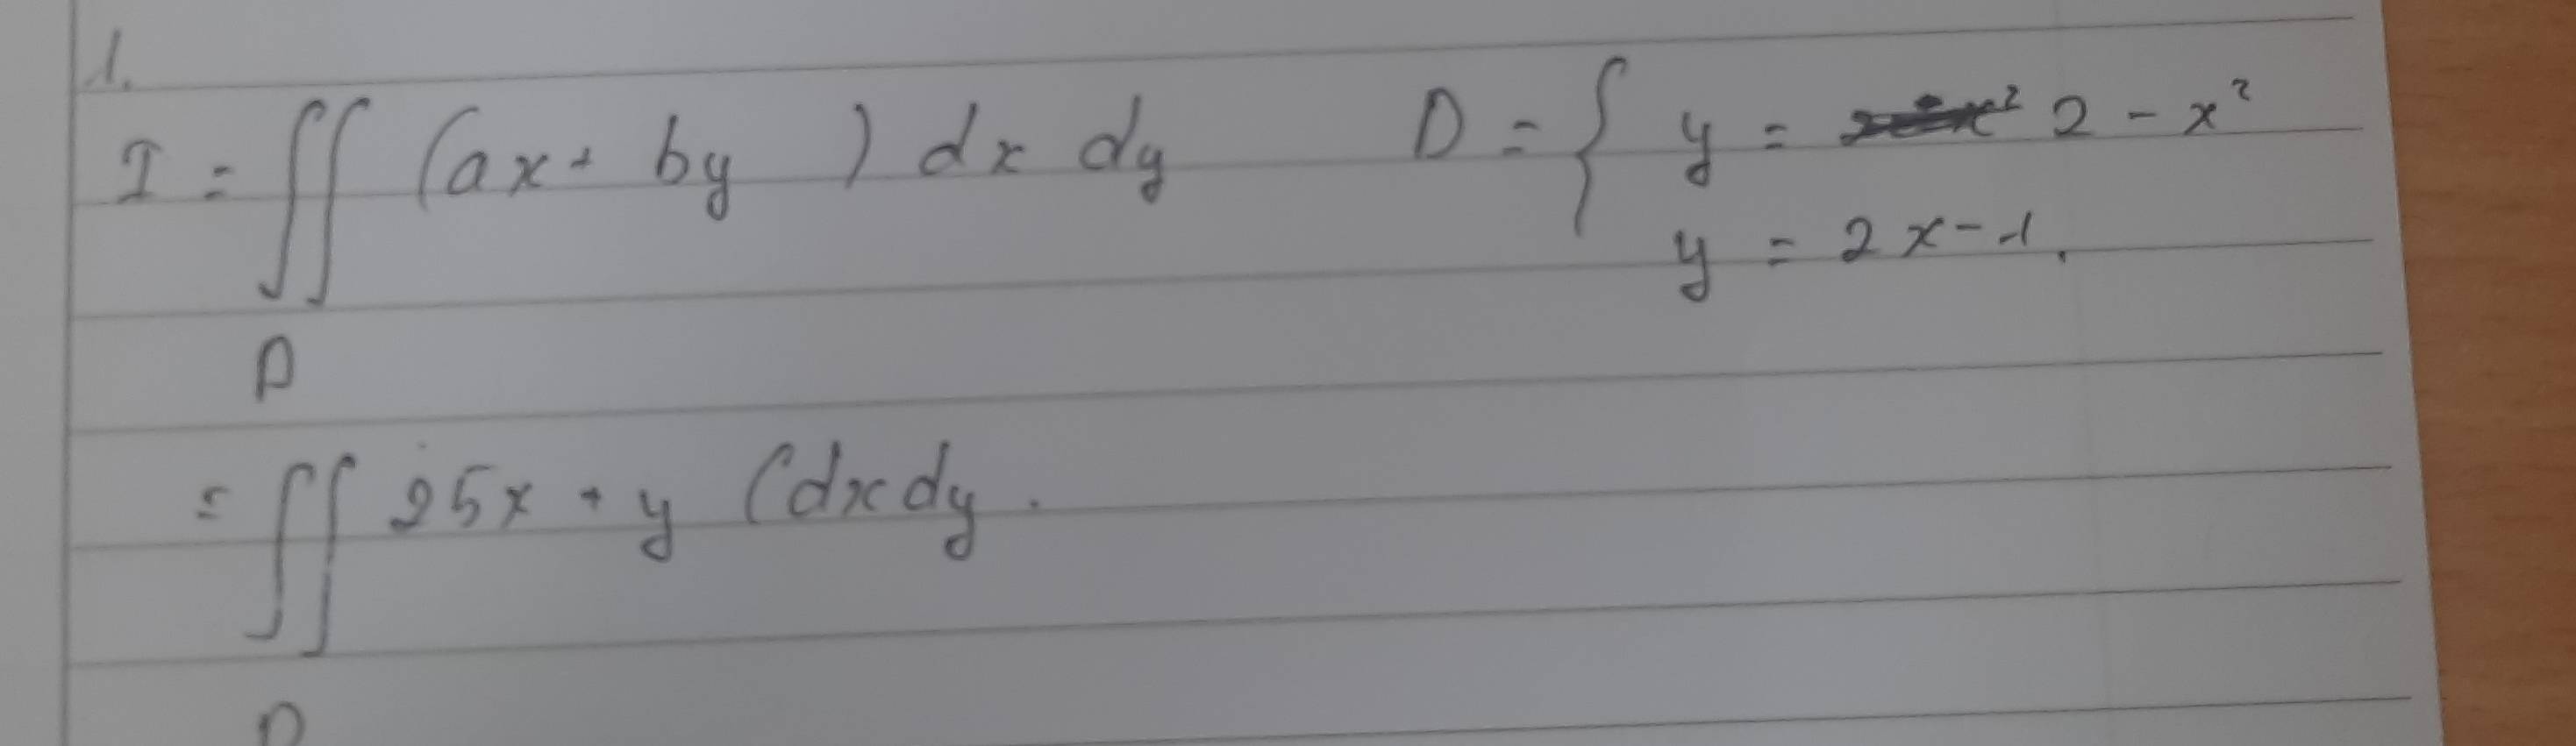 1.
I = ∬ (ax + by ) dx dy D = { y = 2 - x²
y = 2x - 1.
D
= ∬ 25x + y (dxdy.
D